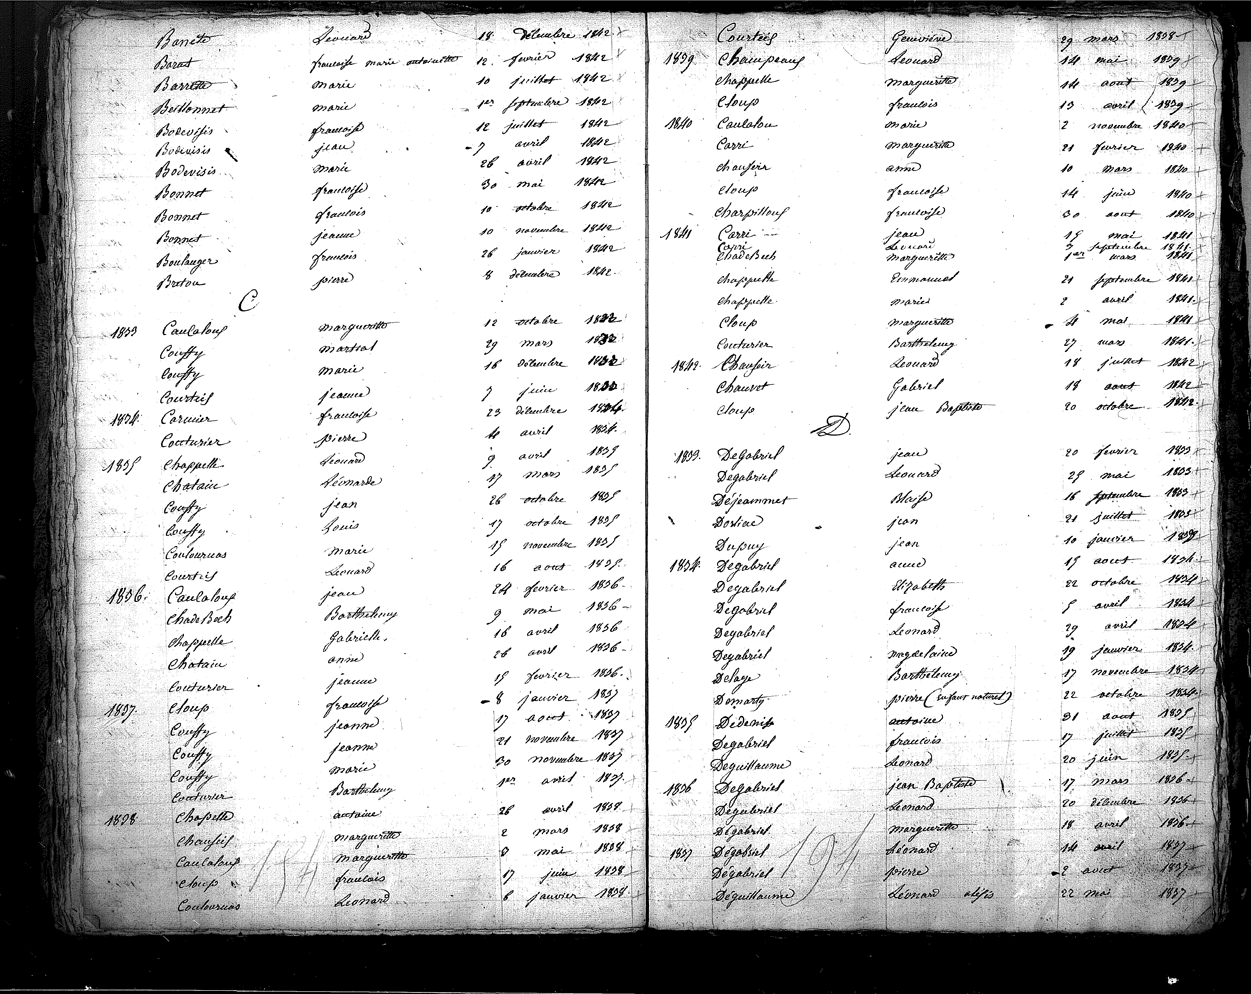 Barrete Leonard 18 décembre 1842
Barret françoise marie antoinette 12 fevrier 1842
Barrette marie 10 juillet 1842
Beillonnet marie 1er septembre 1842
françoise 12 juillet 1842
jean 7 avril 1842
marie 26 avril 1842
Bonnet françoise 30 mai 1842
Bonnet françois 10 octobre 1842
Bonnet jeanne 10 novembre 1842
Boulanger françois 26 janvier 1842
Breton pierre 8 décembre 1842
C
1833 Caucaloup marguerite 12 octobre 1833
Couffy martial 29 mars 1833
Couffy marie 16 décembre 1833
Courteix jeanne 7 juin 1833
1834 Cormier françoise 23 décembre 1834
Couturier pierre 4 avril 1834
1835 Chappelle Léonard 9 avril 1835
Chatain Léonarde 17 mars 1835
Couffy jean 26 octobre 1835
Couffy Louis 17 octobre 1835
Coulournas marie 15 novembre 1835
Courteix Léonard 16 aout 1835
1836. Caucaloup jean 24 fevrier 1836
ChadeBech Barthelemy 9 mai 1836
Chappelle Gabrielle. 16 avril 1836
Chatain anne 26 avril 1836
Couturier jeanne 15 fevrier 1836
1837. Cloup françoise 8 janvier 1837
Couffy jeanne 17 aout 1837
Couffy jeanne 21 novembre 1837
Couffy marie 30 novembre 1837
Couturier Barthelemy 1er avril 1837
1838 Chapelle antoine 26 avril 1838
marguerite 2 mars 1838
Caucaloup marguerite 8 mai 1838
Cloup françois 17 juin 1838
Coulournas Leonard 6 janvier 1838
Courteix Geneviève 29 mars 1838
1839 Champeaux Leonard 14 mai 1839
Chappelle marguerite 14 aout 1839
Cloup françois 13 avril 1839
1840 Caucalou marie 2 novembre 1840
Carri marguerite 21 fevrier 1840
anne 10 mars 1840
Cloup françoise 14 juin 1840
Charpilloux françoise 30 aout 1840
1841 Carri jean 15 mai 1841
Capri Leonard 7 septembre 1841
ChadeBech marguerite 1er mars 1841
Chappelle Emmanuel 21 septembre 1841
Chappelle marie 2 avril 1841
Cloup marguerite 4 mai 1841
Couturier Barthelemy 27 mars 1841
1842. Leonard 18 juillet 1842
Chauvet Gabriel 18 aout 1842
Cloup jean Baptiste 20 octobre 1842
D.
1833. Degabriel jean 20 fevrier 1833
Degabriel Leonard 25 mai 1833
Déjeammet Blaise 16 septembre 1833
jean 21 juillet 1833
Dupuy jean 10 janvier 1833
1834 Degabriel anne 15 aout 1834
Degabriel Elizabeth 22 octobre 1834
Degabriel françoise 5 avril 1834
Degabriel Leonard 29 avril 1834
Degabriel magdelaine 19 janvier 1834
Delage Barthélemy 17 novembre 1834
Domarty pierre (enfant naturel) 22 octobre 1834
1835 Dedenis antoine 31 aout 1835
Degabriel françois 17 juillet 1835
Deguillaume Leonard 20 juin 1835
1836 Degabriel jean Baptiste 17 mars 1836
Degabriel Léonard 20 décembre 1836
Dégabriel marguerite 18 avril 1836
1837 Dégabriel Léonard 14 avril 1837
Dégabriel pierre 2 aout 1837
Déguillaume Léonard 22 mai 1837
194